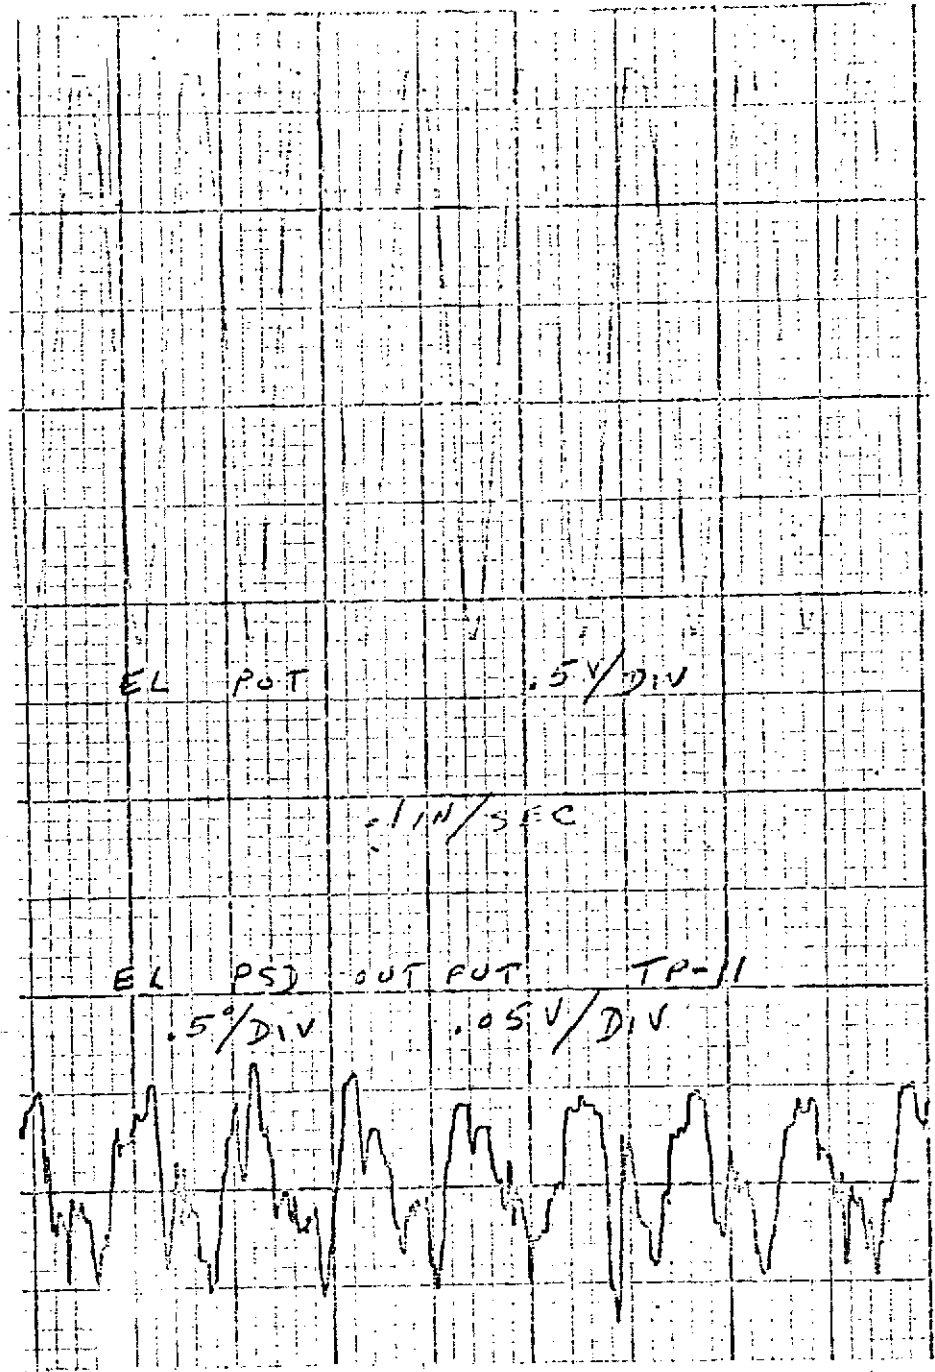 EL POT .5V/DIV
.1IN/SEC
EL PSD OUTPUT TP-11
.5°/DIV .05V/DIV